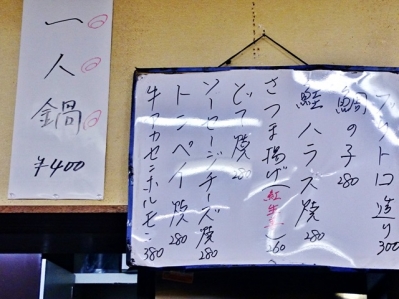 一人鍋
¥400
ブットロ造り300
鯛の子280
鮭ハラス焼280
さつま揚げ(紅生)260
どて焼280
ソーセージチーズ焼280
トンペイ焼280
牛アカセンホルモン380